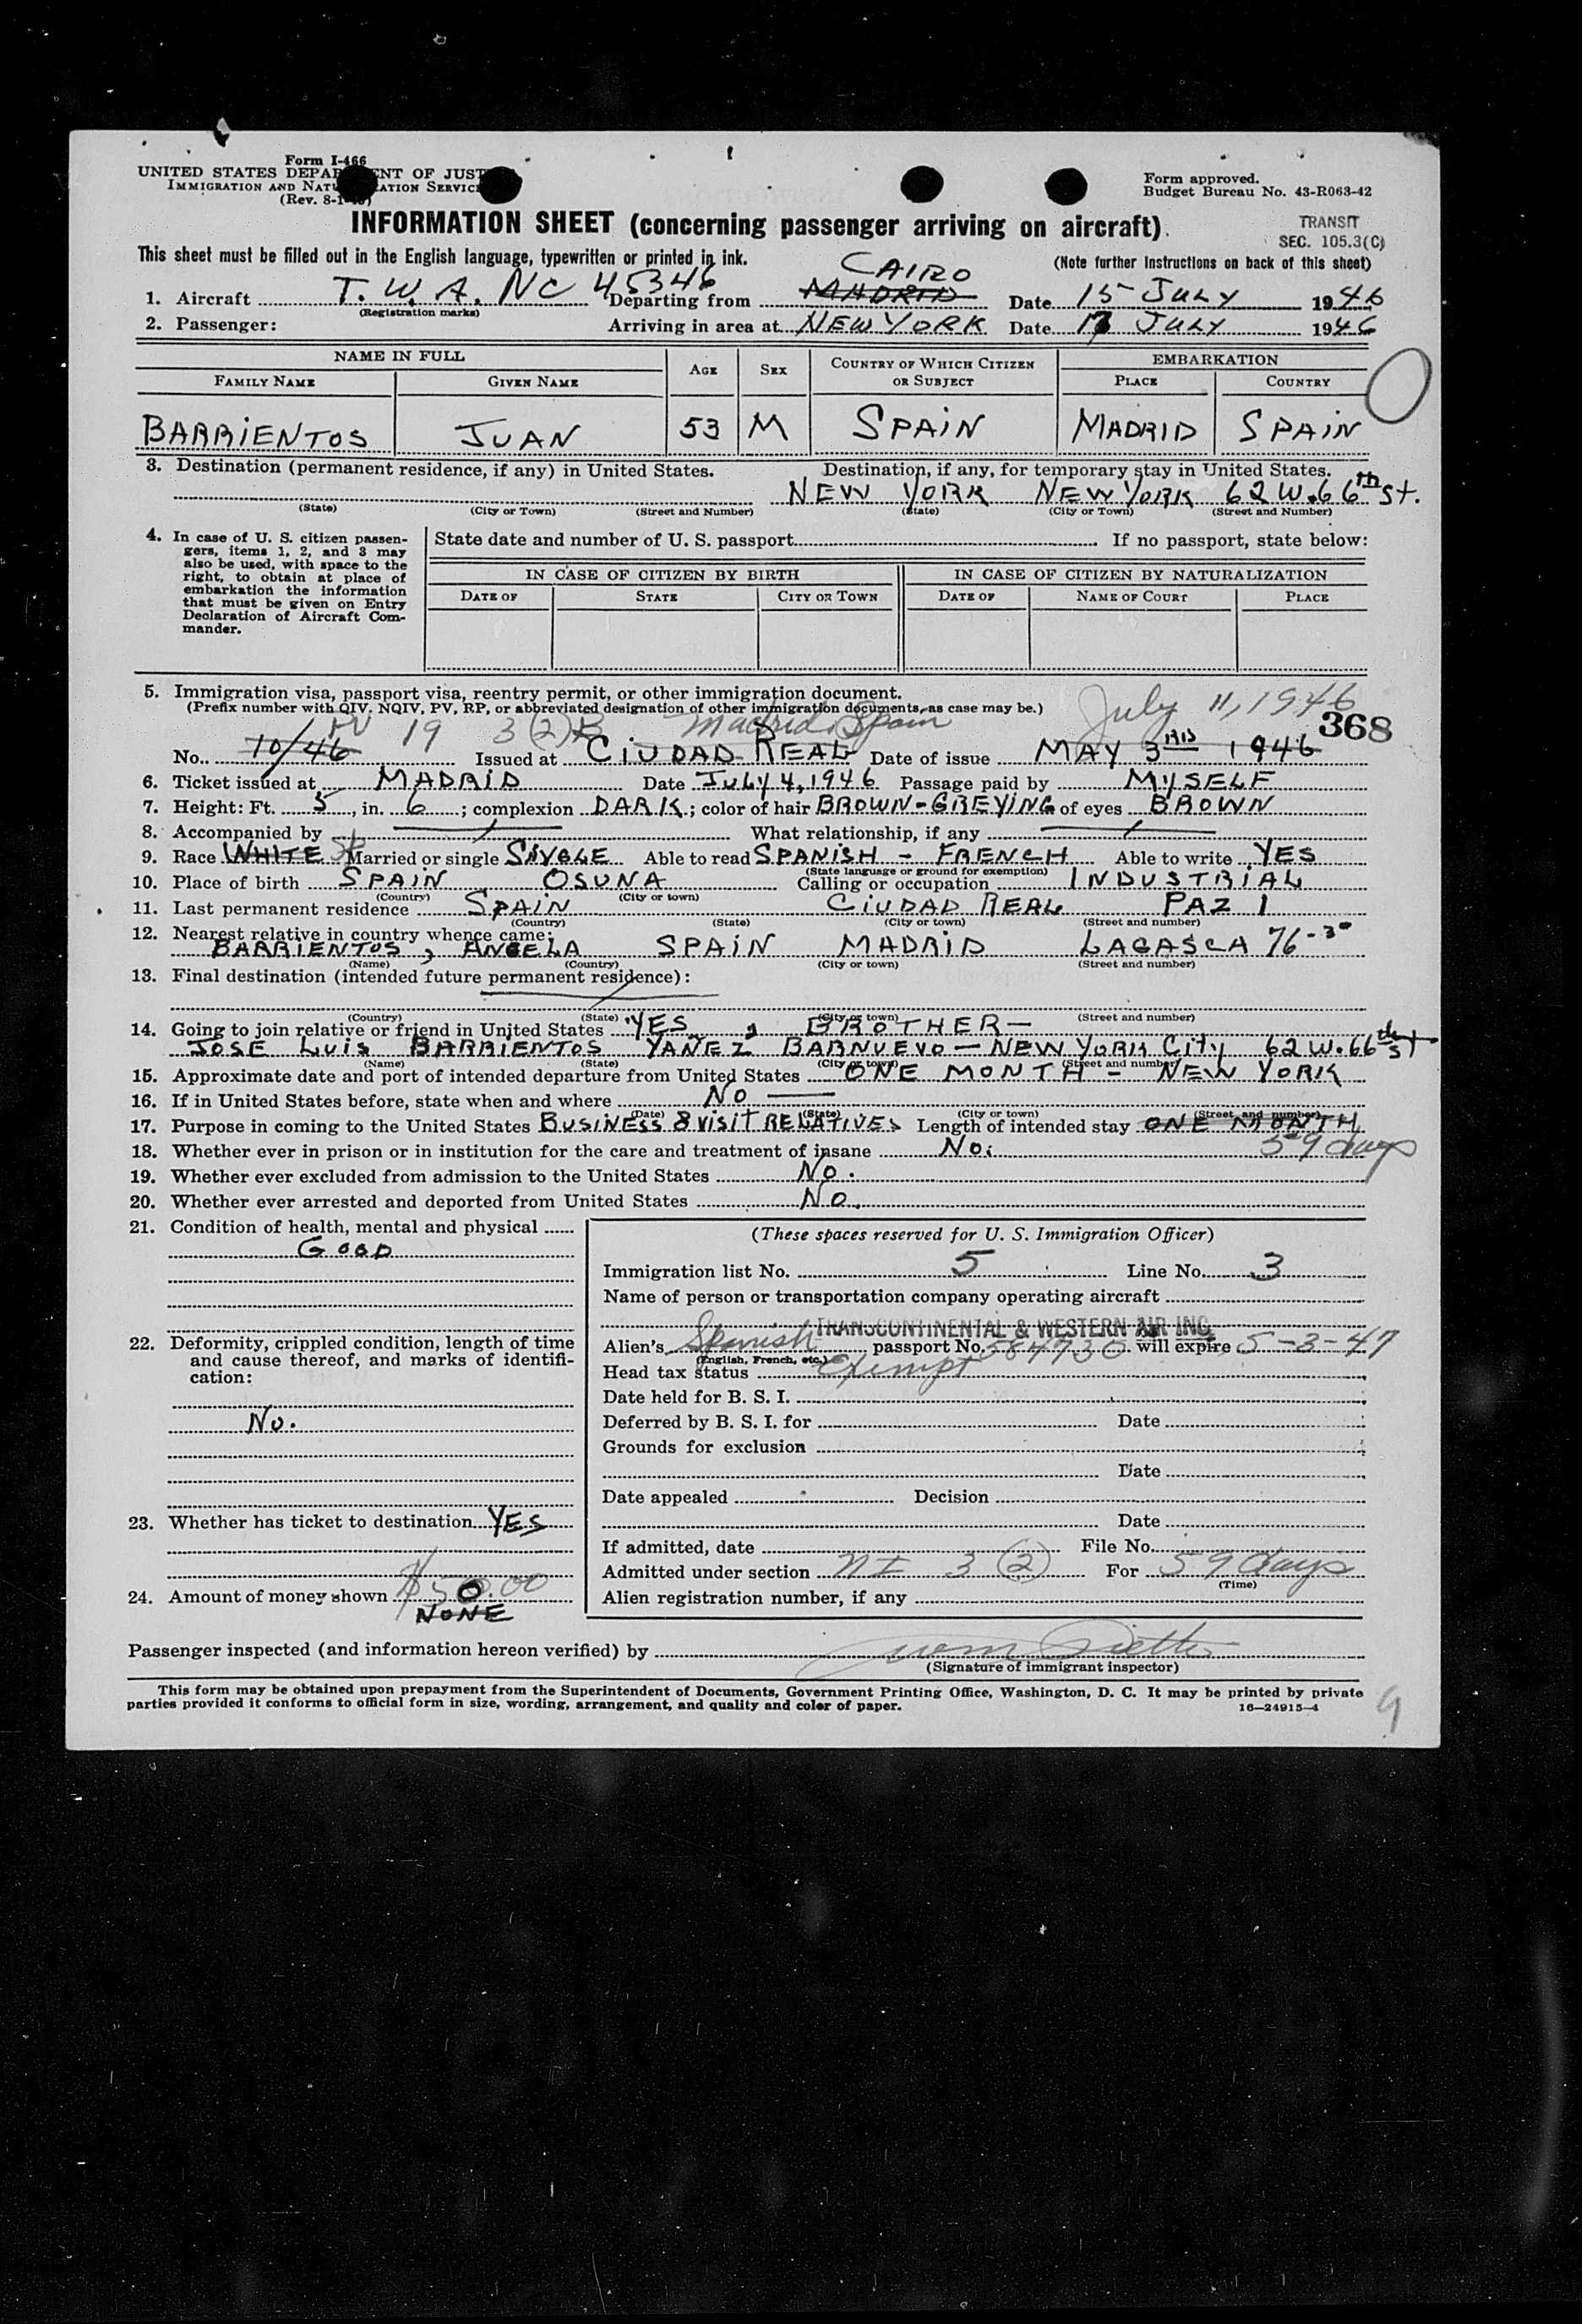 Form I-466
UNITED STATES DEPARTMENT OF JUSTICE
IMMIGRATION AND NATURALIZATION SERVICE
(Rev. 8-1-45)
Form approved.
Budget Bureau No. 43-R063-42
INFORMATION SHEET (concerning passenger arriving on aircraft).
TRANSIT
SEC. 105.3(C)
This sheet must be filled out in the English language, typewritten or printed in ink.
(Note further instructions on back of this sheet)
CAIRO
1. Aircraft T. W. A. NC 45346 Departing from MADRID Date 15 JULY 1946
(Registration marks)
2. Passenger: Arriving in area at NEW YORK Date 17 JULY 1946
NAME IN FULL AGE SEX COUNTRY OF WHICH CITIZEN OR SUBJECT EMBARKATION
FAMILY NAME GIVEN NAME PLACE COUNTRY
BARRIENTOS JUAN 53 M SPAIN MADRID SPAIN
3. Destination (permanent residence, if any) in United States. Destination, if any, for temporary stay in United States.
NEW YORK NEW YORK 62 W. 66th St.
(State) (City or Town) (Street and Number) (State) (City or Town) (Street and Number)
4. In case of U. S. citizen passengers, items 1, 2, and 3 may also be used, with space to the right, to obtain at place of embarkation the information that must be given on Entry Declaration of Aircraft Commander.
State date and number of U. S. passport If no passport, state below:
IN CASE OF CITIZEN BY BIRTH IN CASE OF CITIZEN BY NATURALIZATION
DATE OF STATE CITY OR TOWN DATE OF NAME OF COURT PLACE
5. Immigration visa, passport visa, reentry permit, or other immigration document.
(Prefix number with QIV, NQIV, PV, RP, or abbreviated designation of other immigration documents, as case may be.)
PV 19 3(2) Madrid Spain July 11, 1946
368
No. 10/46 Issued at CIUDAD REAL Date of issue MAY 3 1946
6. Ticket issued at MADRID Date JULY 4, 1946 Passage paid by MYSELF
7. Height: Ft. 5, in. 6; complexion DARK; color of hair BROWN-GREYING of eyes BROWN
8. Accompanied by What relationship, if any
9. Race WHITE Sp Married or single SINGLE Able to read SPANISH - FRENCH Able to write YES
(State language or ground for exemption)
10. Place of birth SPAIN OSUNA Calling or occupation INDUSTRIAL
(Country) (City or town)
11. Last permanent residence SPAIN CIUDAD REAL PAZ 1
(Country) (State) (City or town) (Street and number)
12. Nearest relative in country whence came:
BARRIENTOS, ANGELA SPAIN MADRID LAGASCA 76-3º
(Name) (Country) (City or town) (Street and number)
13. Final destination (intended future permanent residence):
(Country) (State) (City or town) (Street and number)
14. Going to join relative or friend in United States YES, BROTHER-
JOSE LUIS BARRIENTOS YAÑEZ BARNUEVO - NEW YORK CITY 62 W. 66th St
(Name) (State) (City or town) (Street and number)
15. Approximate date and port of intended departure from United States ONE MONTH - NEW YORK
16. If in United States before, state when and where NO
(Date) (State) (City or town) (Street and number)
17. Purpose in coming to the United States BUSINESS & VISIT RELATIVES Length of intended stay ONE MONTH
59 days
18. Whether ever in prison or in institution for the care and treatment of insane No.
19. Whether ever excluded from admission to the United States No.
20. Whether ever arrested and deported from United States No.
21. Condition of health, mental and physical
GOOD
22. Deformity, crippled condition, length of time and cause thereof, and marks of identification:
No.
23. Whether has ticket to destination YES
24. Amount of money shown $50.00
NONE
(These spaces reserved for U. S. Immigration Officer)
Immigration list No. 5 Line No. 3
Name of person or transportation company operating aircraft
TRANSCONTINENTAL & WESTERN AIR INC.
Alien's Spanish passport No. 584730 will expire 5-3-47
(English, French, etc.)
Head tax status Exempt
Date held for B. S. I.
Deferred by B. S. I. for Date
Grounds for exclusion
Date
Date appealed Decision
Date
If admitted, date File No.
Admitted under section NI 3 (2) For 59 days
(Time)
Alien registration number, if any
Passenger inspected (and information hereon verified) by
(Signature of immigrant inspector)
This form may be obtained upon prepayment from the Superintendent of Documents, Government Printing Office, Washington, D. C. It may be printed by private
parties provided it conforms to official form in size, wording, arrangement, and quality and color of paper.
16—24915-4
9